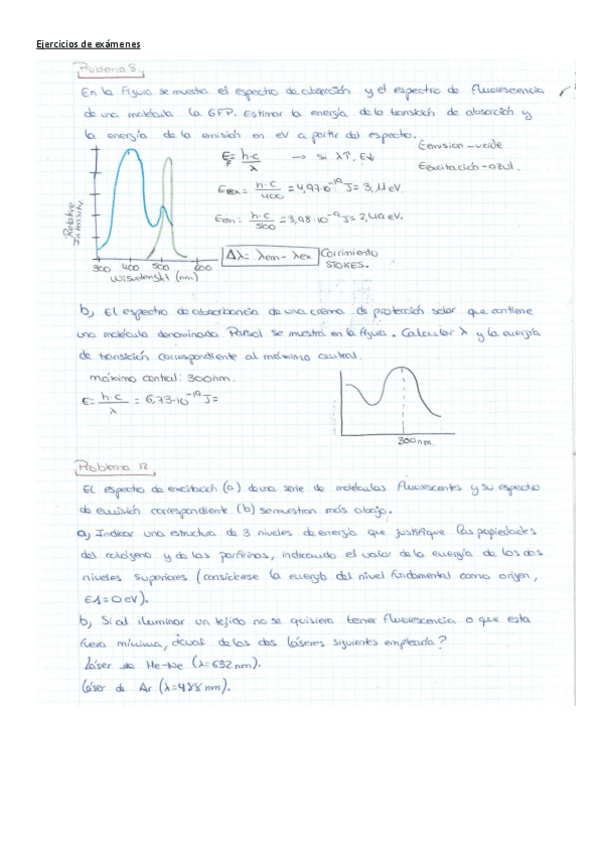 Ejercicios de exámenes
Problema 8
En la figura se muestra el espectro de absorción y el espectro de fluorescencia
de una molécula la GFP. Estimar la energía de la transición de absorción y
la energía de la emisión en eV a partir del espectro.
Emision-verde
Eexcitación-azul.
E= h·c / λ → si λ↑, E↓
Eex = h·c / 400 = 4,97·10⁻¹⁹ J = 3,11 eV.
Eem = h·c / 500 = 3,98·10⁻⁹ J= 2,49 eV.
Δλ = λem - λex Corrimiento
STOKES.
Relative
Intensity
300 400 500 600
(nm)
b) El espectro de absorbancia de una crema de protección solar que contiene
una molécula denominada Parsol se muestra en la figura. Calcular λ y la energía
de transición correspondiente al máximo central.
máximo central: 300nm.
E= h·c / λ = 6,73·10⁻¹⁹ J=
300nm.
Problema 12
El espectro de excitación (a) de una serie de moléculas fluorescentes y su espectro
de emisión correspondiente (b) se muestran más abajo.
a) Indicar una estructura de 3 niveles de energía que justifique las propiedades
del colágeno y de las porfirinas, indicando el valor de la energía de los dos
niveles superiores (considérese la energía del nivel fundamental como origen,
E1=0eV).
b) Si al iluminar un tejido no se quisiera tener fluorescencia o que esta
fuera mínima, ¿cual de los dos láseres siguientes emplearía?
Láser de He-Ne (λ=632nm).
Láser de Ar (λ=488nm).